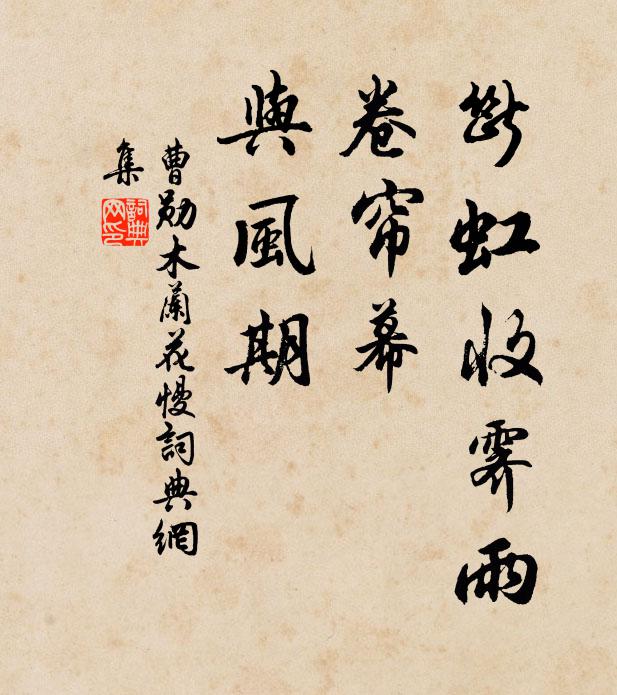 斷虹收霽雨
卷帘幕
與風期
曹勛木蘭花慢詞典網
集
詞典
网印